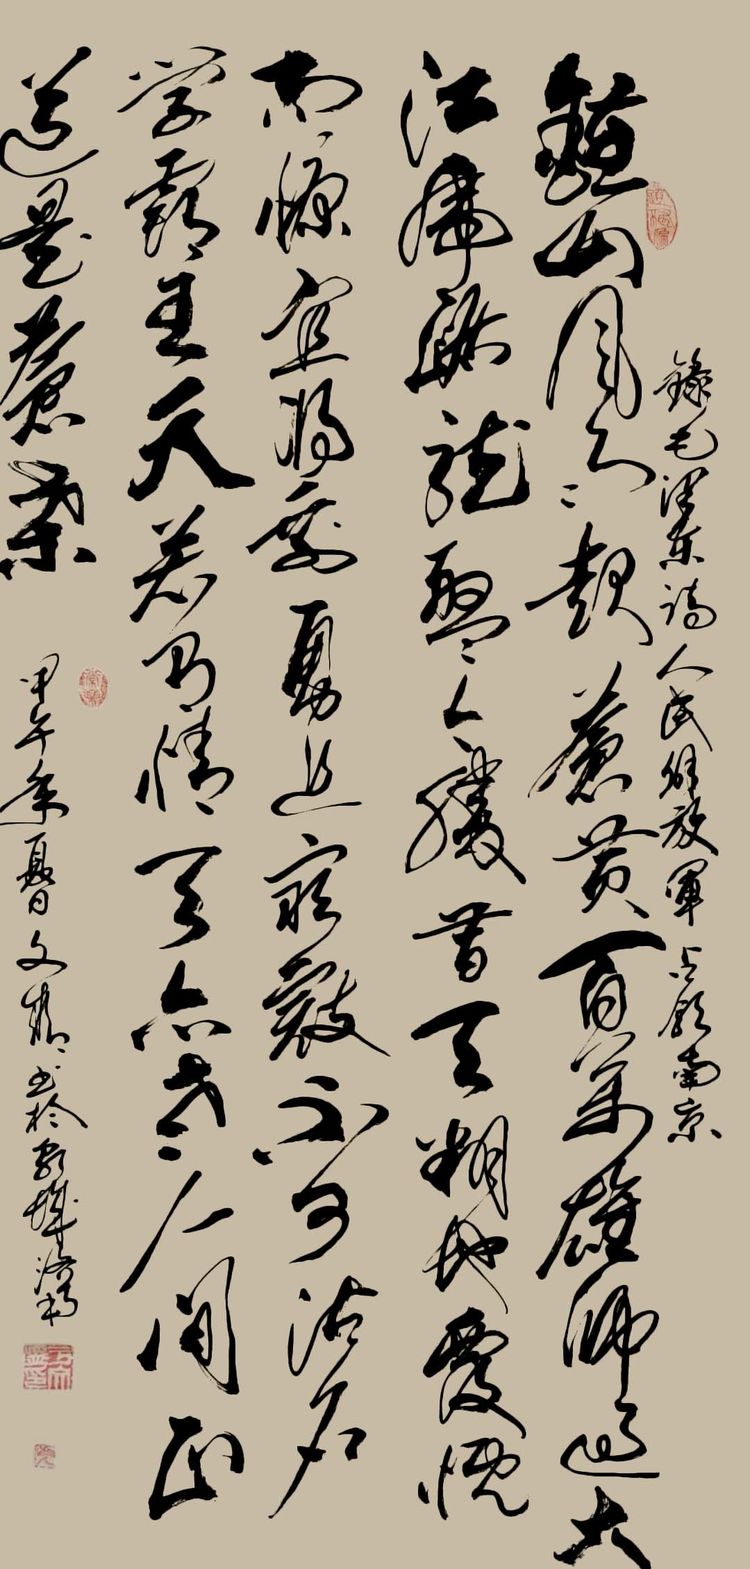 錄毛泽东诗人民解放军占领南京
鍾山风雨起蒼黄百万雄师过大
江虎踞龍盘今勝昔天翻地覆慨
而慷宜将剩勇追窮寇不可沽名
学霸王天若有情天亦老人间正
道是蒼桑
甲午年夏日文 书於 城